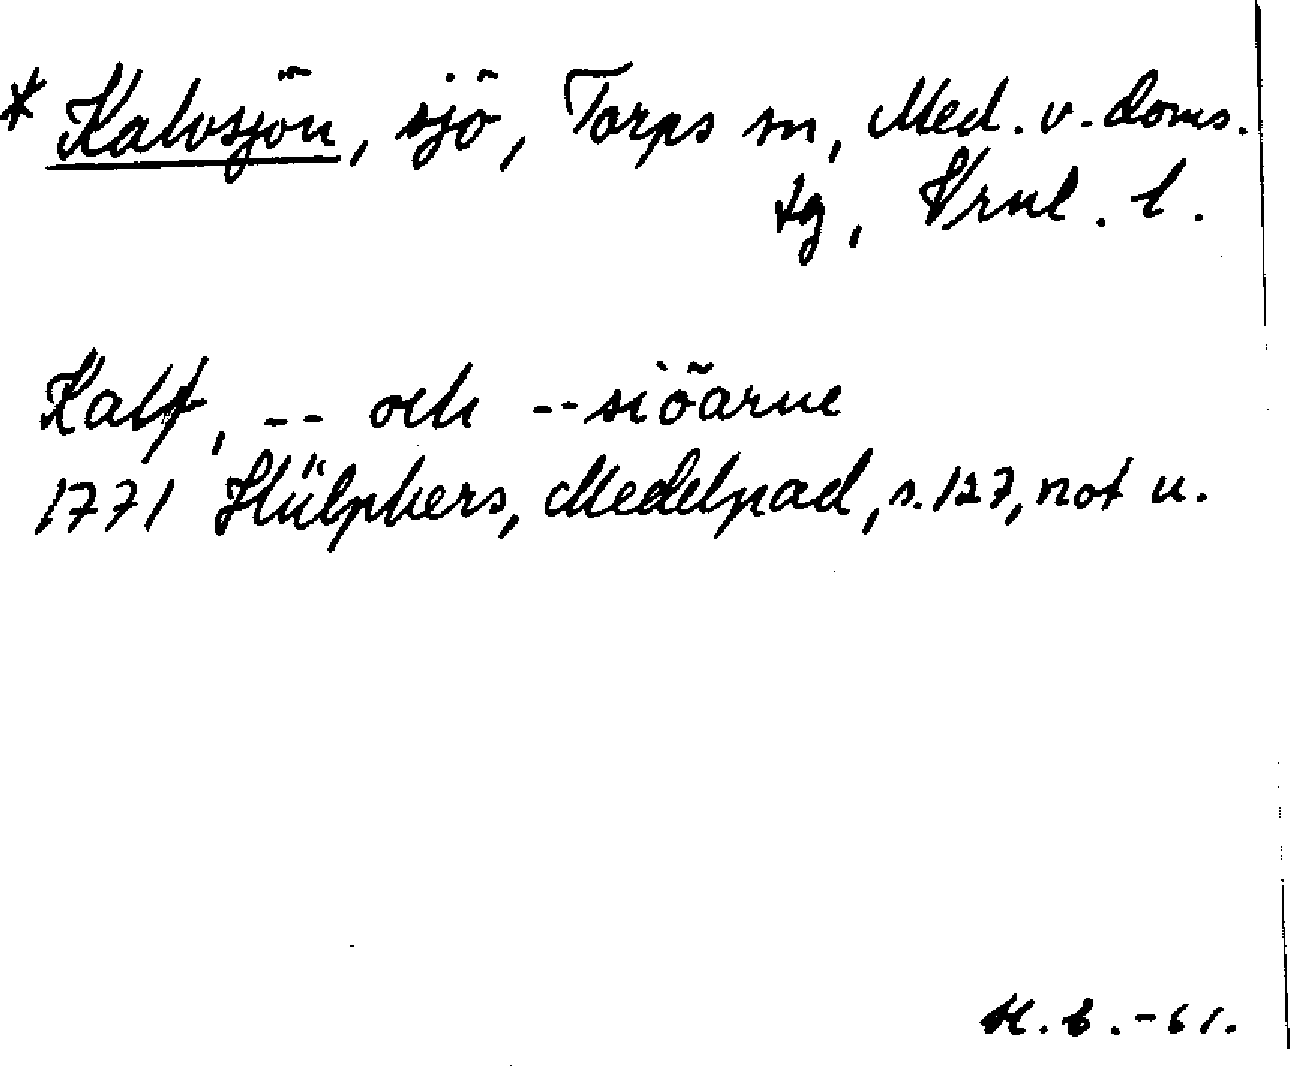 * Kalvsjön, sjö, Torps sn, Med. v. doms.
tg, Vrnl. l.
Kalf, -- och -- siöarne
1771 Hülphers, Medelpad, s. 127, not u.
H. B. -61.